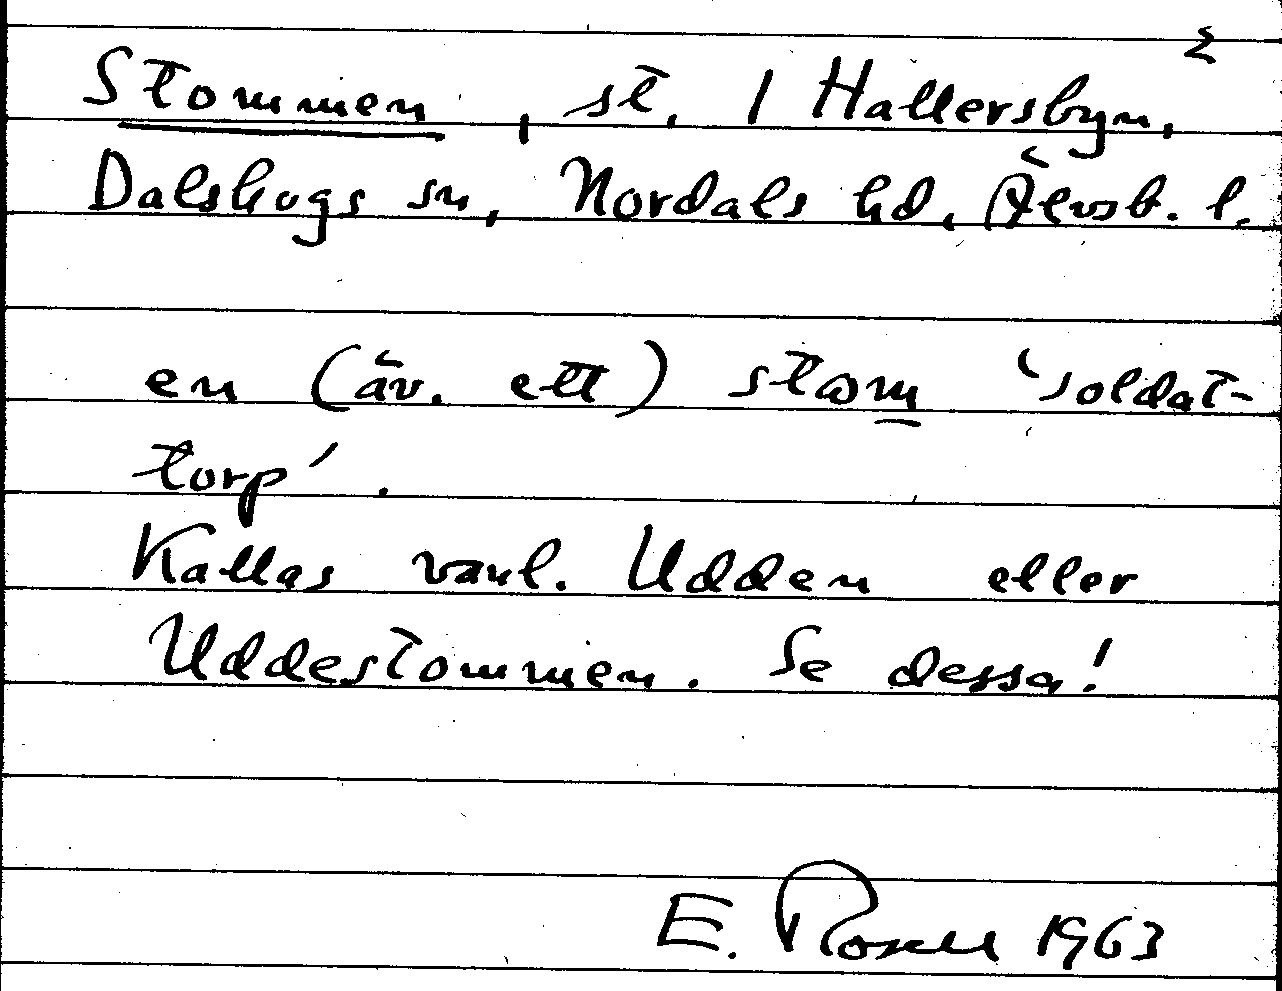 2
Stommen, st. 1 Hallersbyn,
Dalskogs sn, Nordals hd, Älvsb. l.
en (äv. ett) stom ‘soldat-
torp’.
Kallas vanl. Udden eller
Uddestommen. Se dessa!
E. Rosell 1963